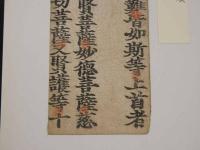 難皆如斯等上首者
賢菩薩妙德菩薩慈
切菩薩又賢護等十